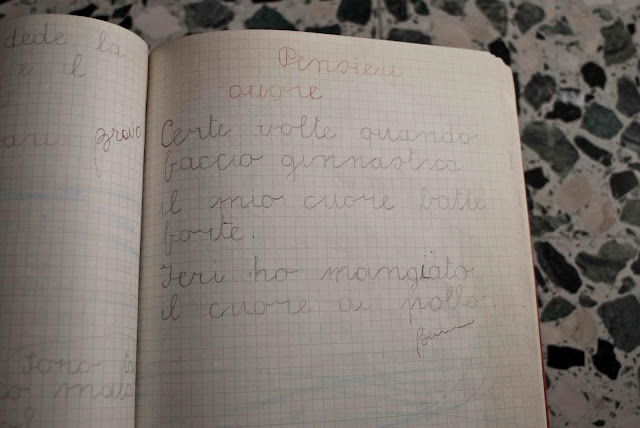 dede la
e il
bravo
Sono
Pensieri
cuore
Certe volte quando
faccio ginnastica
il mio cuore batte
forte.
Ieri ho mangiato
il cuore di pollo.
Bene